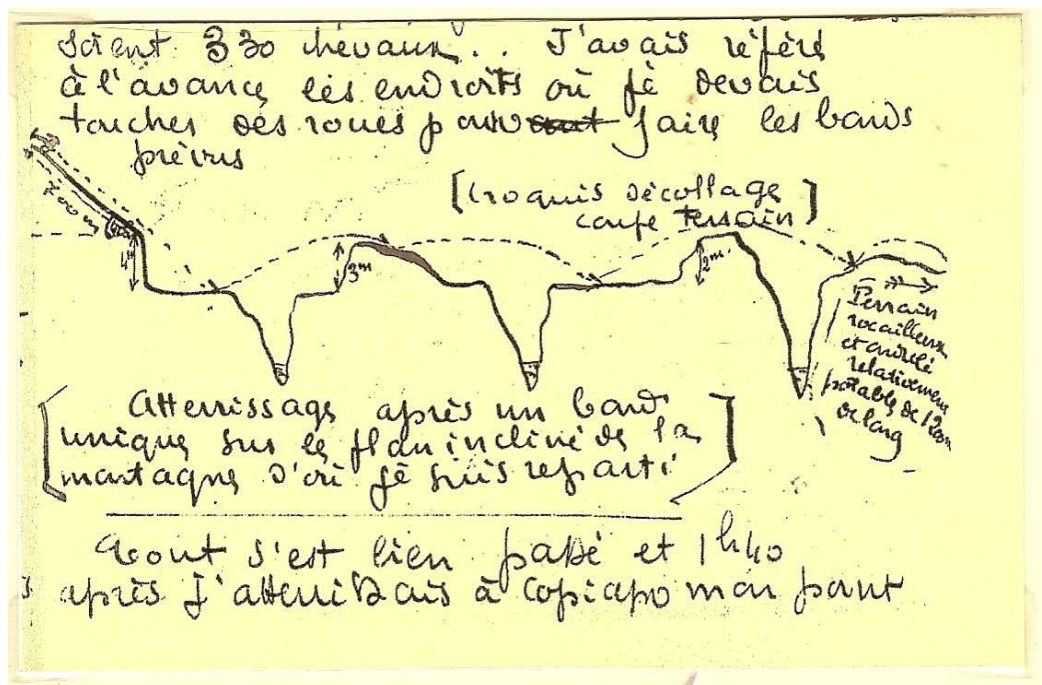 soient 330 chevaux.. J'avais répéré
à l'avance les endroits où je devais
toucher des roues pour faire les bonds
prévus
[Croquis décollage
coupe terrain]
4m
3m
2m
Terrain
rocailleux
et ondulé
relativement
potable de
de long
[Atterrissage après un bond
unique sur le plan incliné de la
montagne d'où je suis reparti]
Tout s'est bien passé et 1h40
après j'atterissais à Copiapo mon point